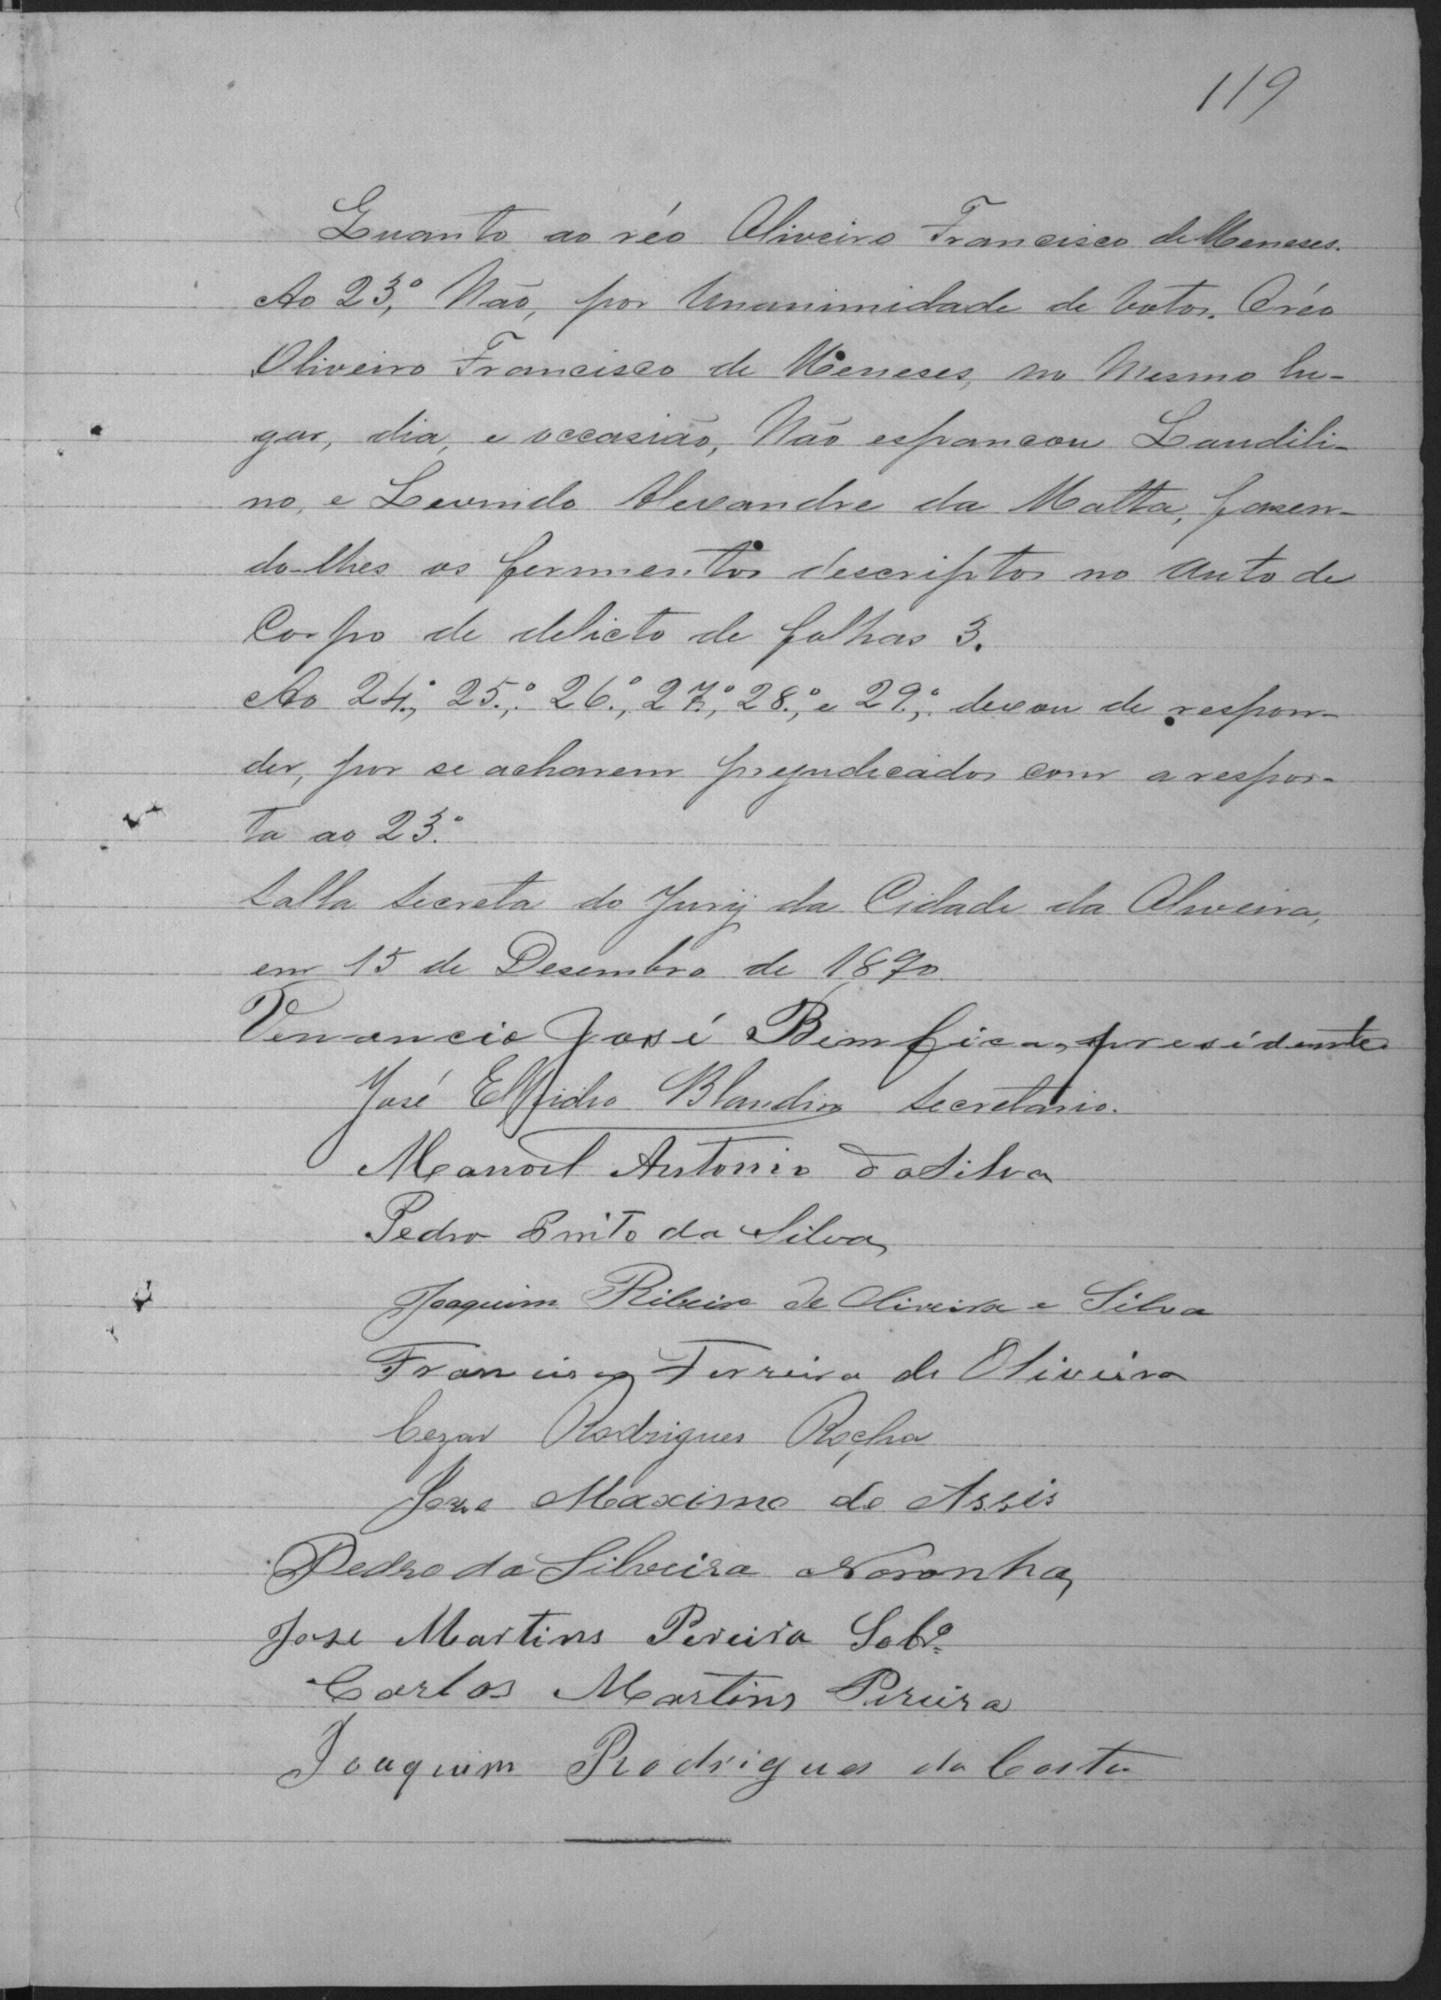 119
Quanto ao réo Oliveiro Francisco de Meneses.
Ao 23º, Não, por Unanimidade de votos. O réo
Oliveiro Francisco de Meneses, no mesmo lu-
gar, dia, e occasião, Não espancou Laudili-
no, e Levindo Alexandre da Matta, fasen-
do-lhes os ferimentos descriptos no auto de
Corpo de delicto de folhas 3.
Ao 24º, 25º, 26º, 27º, 28º, e 29º, deixou de respon-
der, por se acharem prejudicados com a respos-
ta ao 23º.
Salla Secreta do Jury da Cidade da Oliveira,
em 15 de Desembro de 1890
Venancio José Bemfica, presidente
José Elpidio Blandin Secretario.
Manoel Antonio da Silva
Pedro Brito da Silva
Joaquim Ribeiro de Oliveira e Silva
Francisco Ferreira de Oliveira
Cezar Rodrigues Rocha
Joze Maximo de Assis
Pedro da Silveira Noronha
Jose Martins Pereira Sobrº
Carlos Martins Pereira
Joaquim Rodrigues da Costa